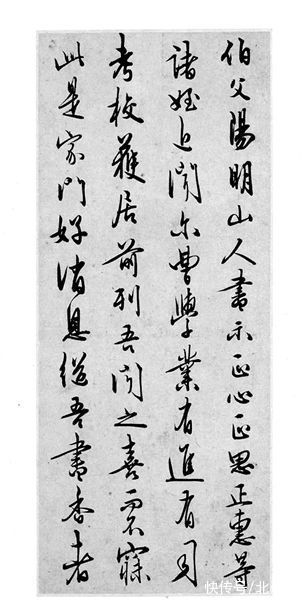 伯父陽明山人書示正心正思正惠等
諸姪近聞尔曹學業有進有司
考校獲居前列吾聞之喜而不寐
此是家門好消息繼吾書香者
快传号/北